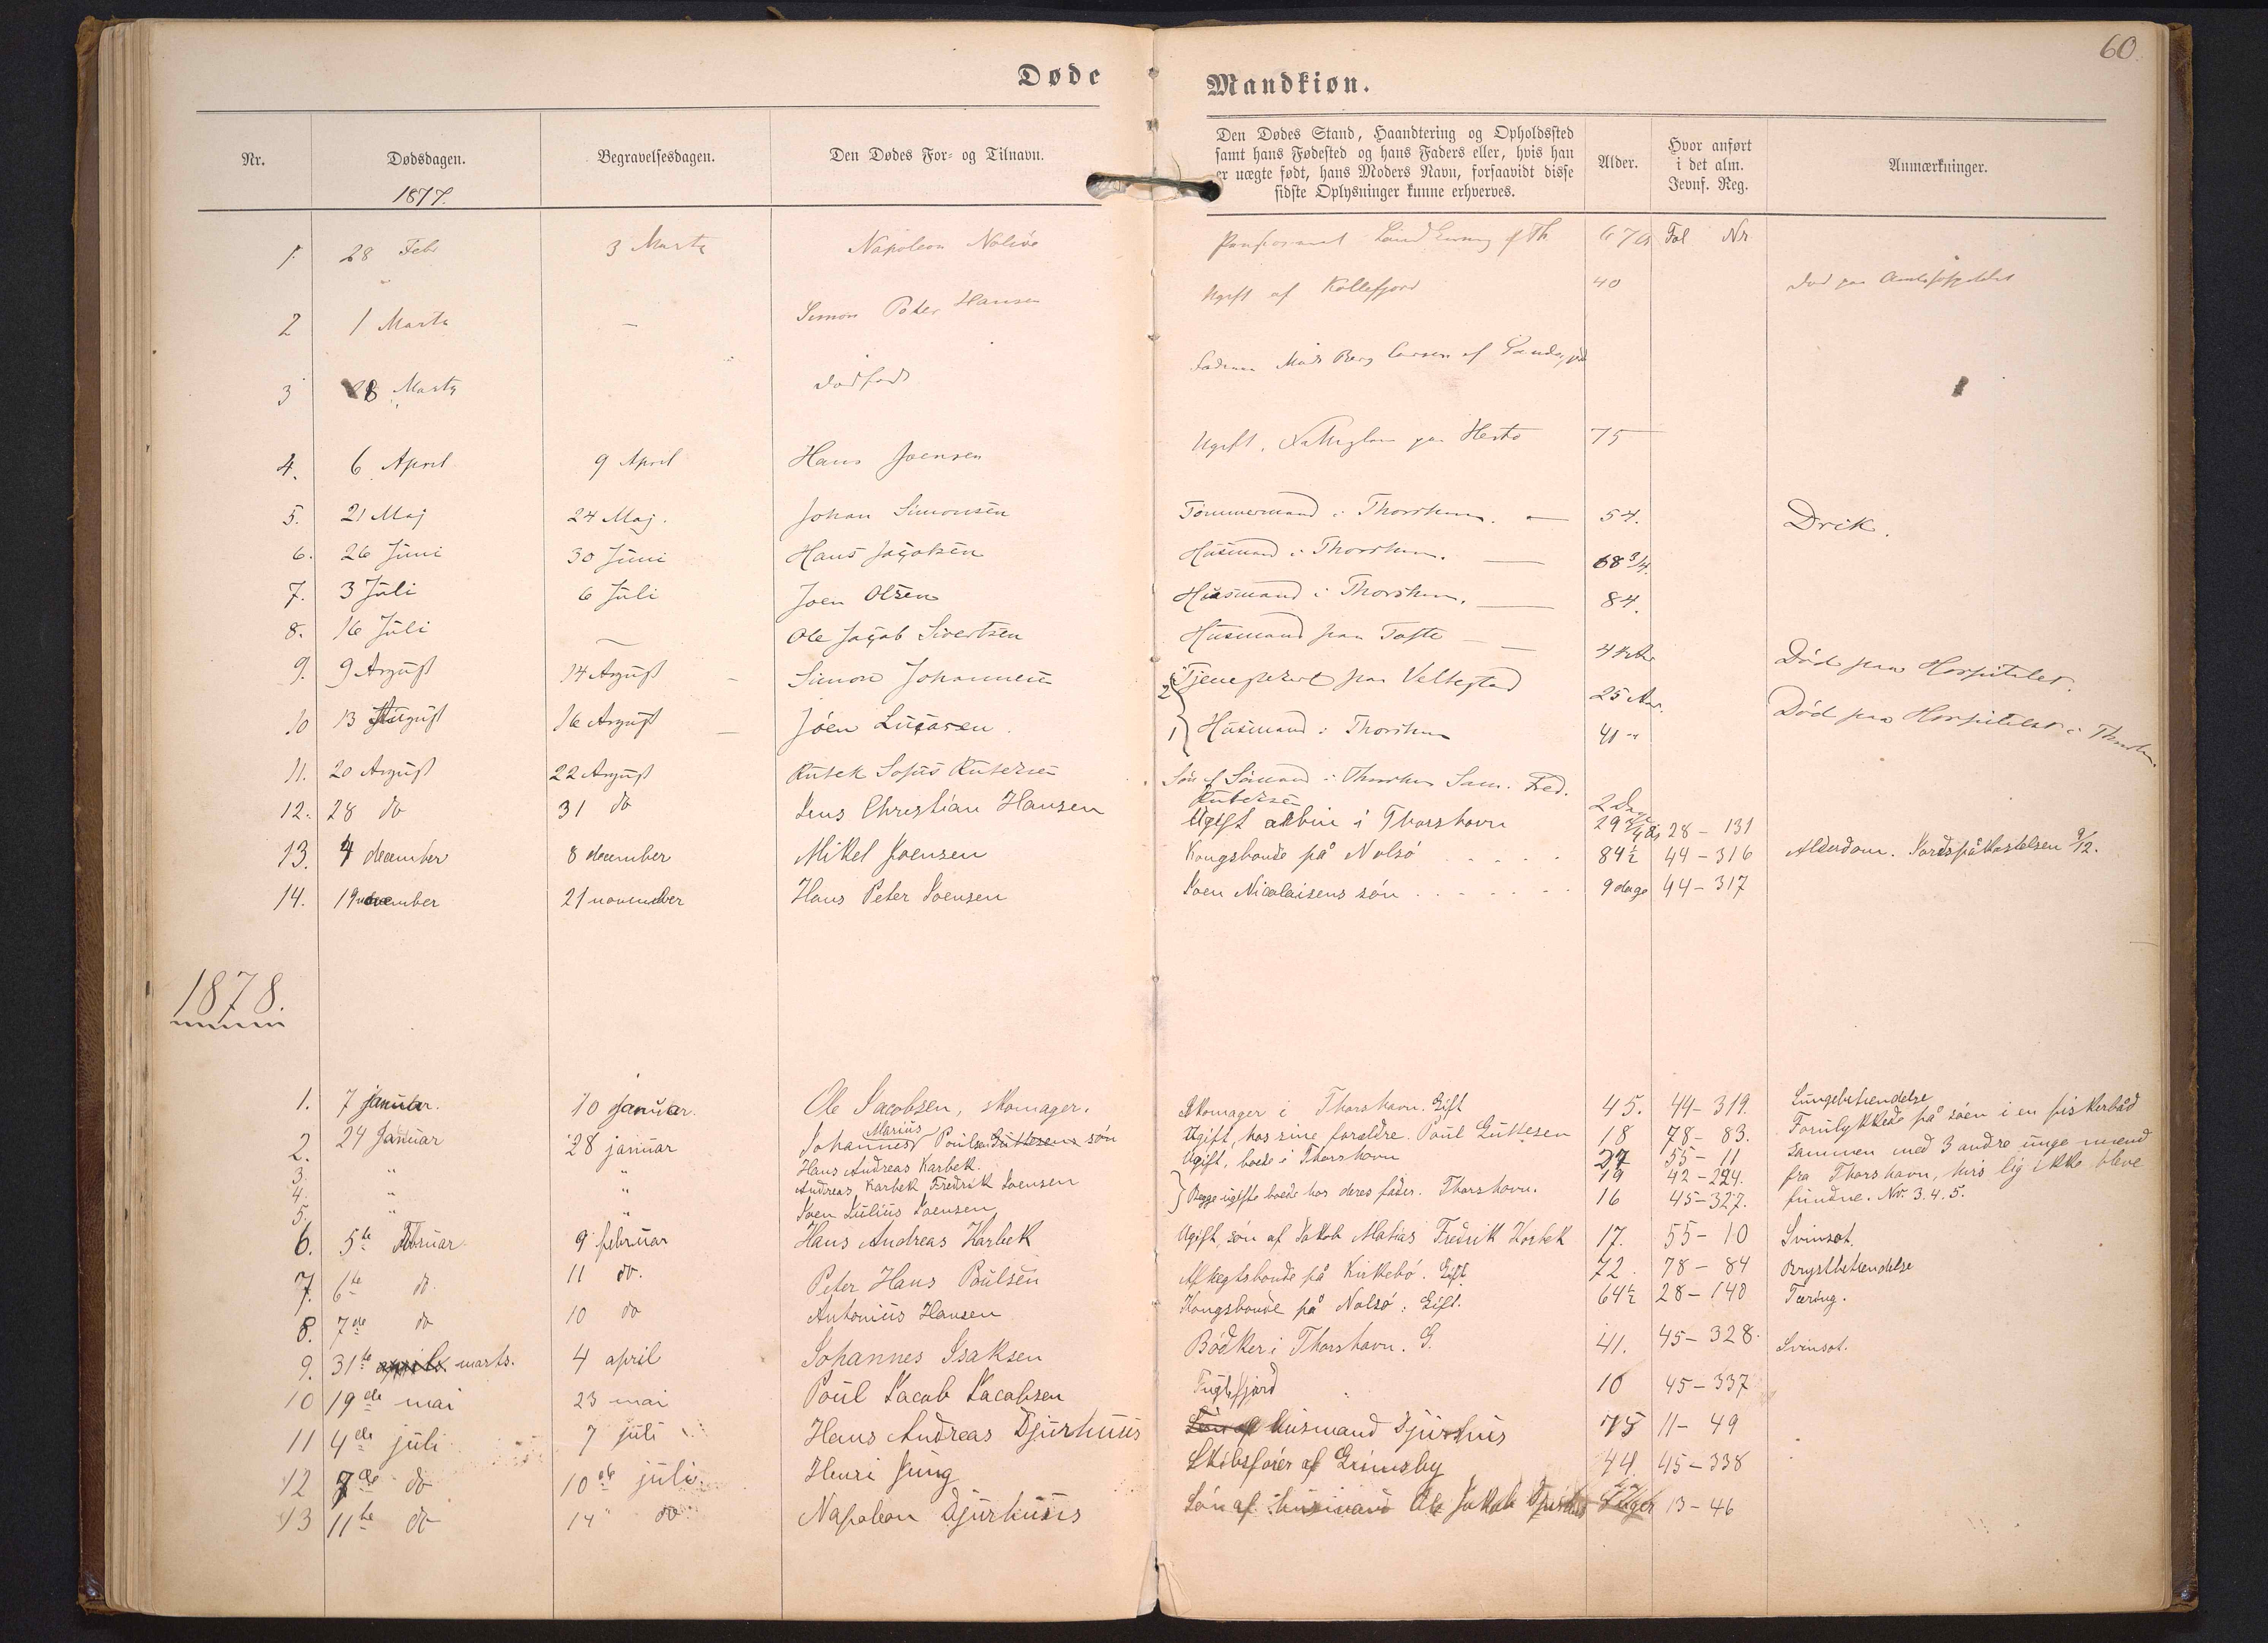 60.
Døde Mandkiøn.
Nr. Dødsdagen. Begravelsesdagen. Den Dødes For- og Tilnavn. Den Dødes Stand, Haandtering og Opholdssted samt hans Fødested og hans Faders eller, hvis han er uægte født, hans Moders Navn, forsaavidt disse sidste Oplysninger kunne erhverves. Alder. Hvor anført i det alm. Jevnf. Reg. Anmærkninger.
1877.
1. 28 Febr 3 Marts Napoleon Nolsøe af Th. 67 Fol Nr
2 1 Marts — Simon Peter Hansen Ugift af Kollefjord 40 Død paa
3 28 Marts dødfødt Faderen Mads Berg Larsen af
4. 6 April 9 April Hans Joensen Ugift. paa Hestø 75
5. 21 Maj 24 Maj. Johan Simonsen Tømmermand i Thorshavn. — 54. Drik.
6. 26 Juni 30 Juni Hans Jacobsen Huusmand i Thorshavn. — 68 3/4.
7. 3 Juli 6 Juli Joen Olsen Huusmand i Thorshavn. — 84.
8. 16 Juli — Ole Jacob Sivertsen Huusmand paa Tofte — Død paa Hospitalet.
9. 9 August 14 August Simon Johannesen 2 paa Velbestad 25 Aar. Død paa Hospitalet i Thorshavn.
10 13 August 16 August Joen Lucasen. 1 Huusmand i Thorshavn 41 "
11. 20 August 22 August Sofus Søn af Sømand i Thorshavn Sam. Fred. 2
12. 28 do 31 do Jens Christian Hansen Ugift i Thorshavn 29 28 - 131
13. 4 december 8 december Mikel Joensen Kongsbonde på Nolsø 84½ 44 - 316 Alderdom. 9/12.
14. 19 november 21 november Hans Peter Joensen Joen Nicolaisens søn 9 dage 44 - 317
1878.
1. 7 januar. 10 januar. Ole Jacobsen, skomager. Skomager i Thorshavn. Gift 45. 44 - 319. Lungebetændelse
2. 24 Januar 28 januar Johannes Marius Poulsen Guttesens søn Ugift, hos sine forældre. Poul Guttesen 18 78 - 83. Forulykkede på søen i en fiskerbåd
3. " " Hans Andreas Karbek. Ugift, boede i Thorshavn 27 55 - 11 sammen med 3 andre unge mænd
4. " " Andreas Karbek Fredrik Joensen } Begge ugifte boede hos deres fader. Thorshavn. 19 42 - 224. fra Thorshavn, hvis lig ikke bleve
5. " " Joen Julius Joensen 16 45 - 327. fundne. Nr. 3. 4. 5.
6. 5te Februar 9 februar Hans Andreas Karbek Ugift, søn af Jakob Matias Fredrik Korbek 17. 55 - 10 Svinsot.
7. 6te do 11 do. Peter Hans Poulsen Afkægtsbonde på Kirkebø. Gift 72. 78 - 84 Brystbetændelse
8. 7de do 10 do Antonius Hansen Kongsbonde på Nolsø. Gift. 64½ 28 - 140 Tæring.
9. 31te april marts. 4 april Johannes Isaksen Bødker i Thorshavn. G. 41. 45 - 328. Svinsot.
10 19de mai 23 mai Poul Jacob Jacobsen Fuglefjord 10 45 - 337
11 4de juli 7 juli Hans Andreas Djurhuus Søn af husmand Djurhus 75 11 - 49
12 7de do 10de juli. Henri Jung Skibsfører af Grimsby 44 45 - 338
13 11te do 14 do Napoleon Djurhuus Søn af husmand Ole Jakob Djurhus 13 - 46